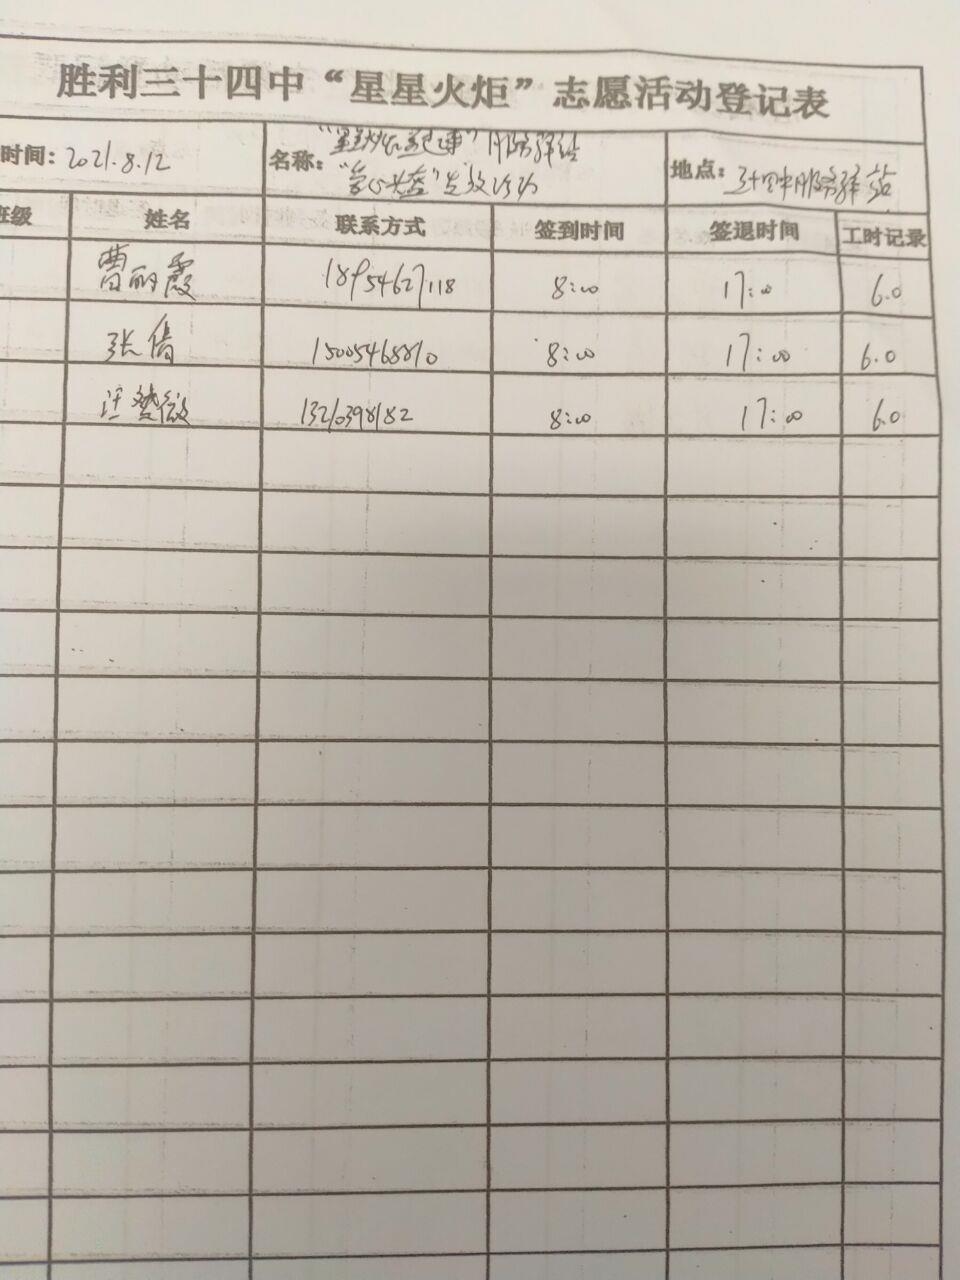 胜利三十四中“星星火炬”志愿活动登记表
时间：2021.8.12 名称： 服务驿站 地点：三十四中服务驿站
活动
班级 姓名 联系方式 签到时间 签退时间 工时记录
曹丽霞 18954627118 8:00 17:00 6.0
张倩 15005468810 8:00 17:00 6.0
汪 微 13210398182 8:00 17:00 6.0